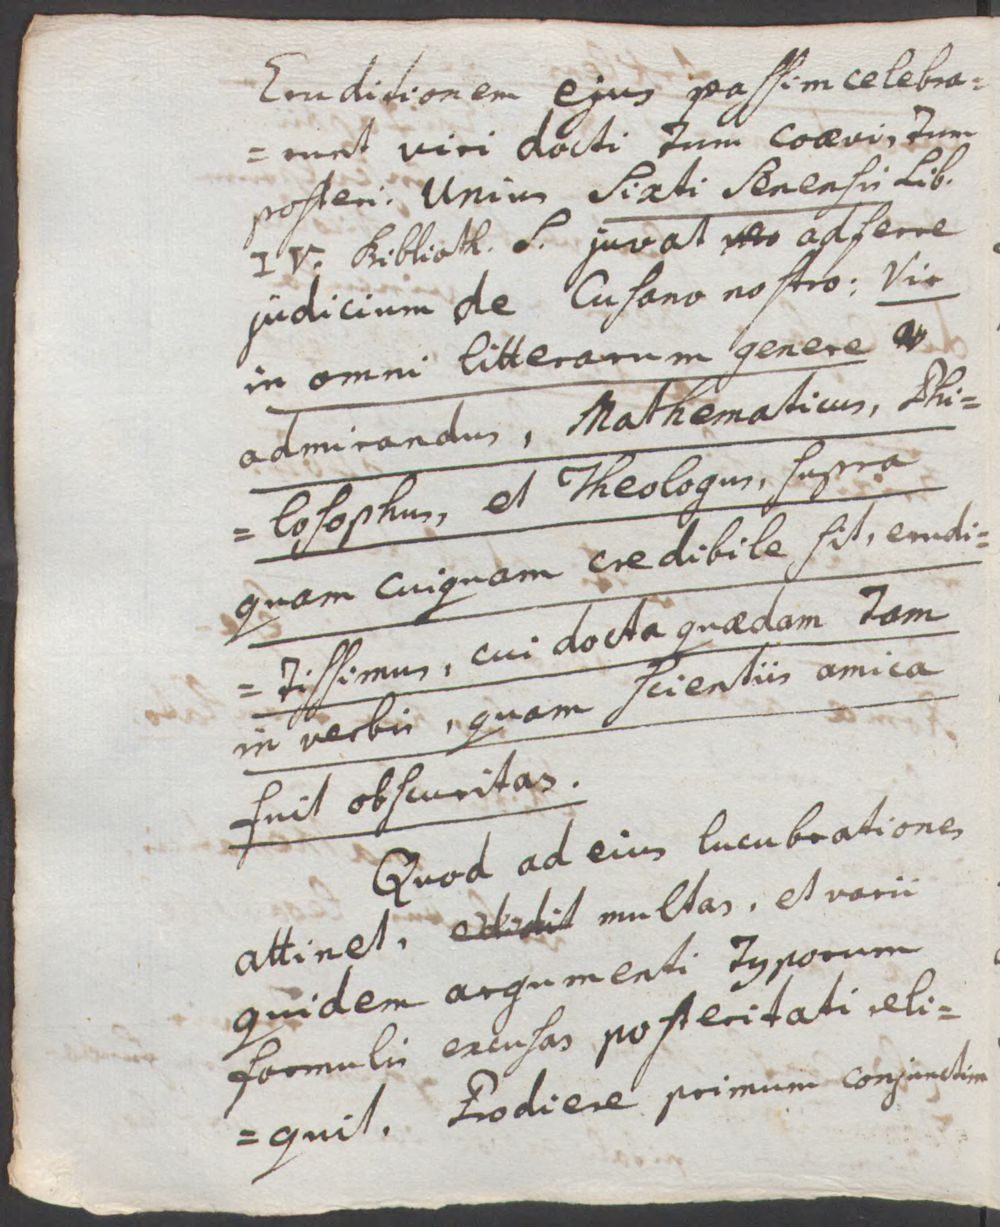 Eruditionem ejus passim celebra=
=runt viri docti tum coævi, tum
posteri. Unius Sixti Senensis Lib.
IV. Biblioth. S. juvat adferre
judicium de Cusano nostro: Vir
in omni litterarum genere
admirandus, Mathematicus, Phi=
=losophus, et Theologus, supra
quam cuiquam credibile sit, erudi=
=tissimus, cui docta quædam tam
in verbis, quam scientiis amica
fuit obscuritas.
Quod ad eius lucubrationes
attinet, edidit multas, et varii
quidem argumenti typorum
formulis excusas posteritati reli=
=quit. Prodiere primum conjunctim